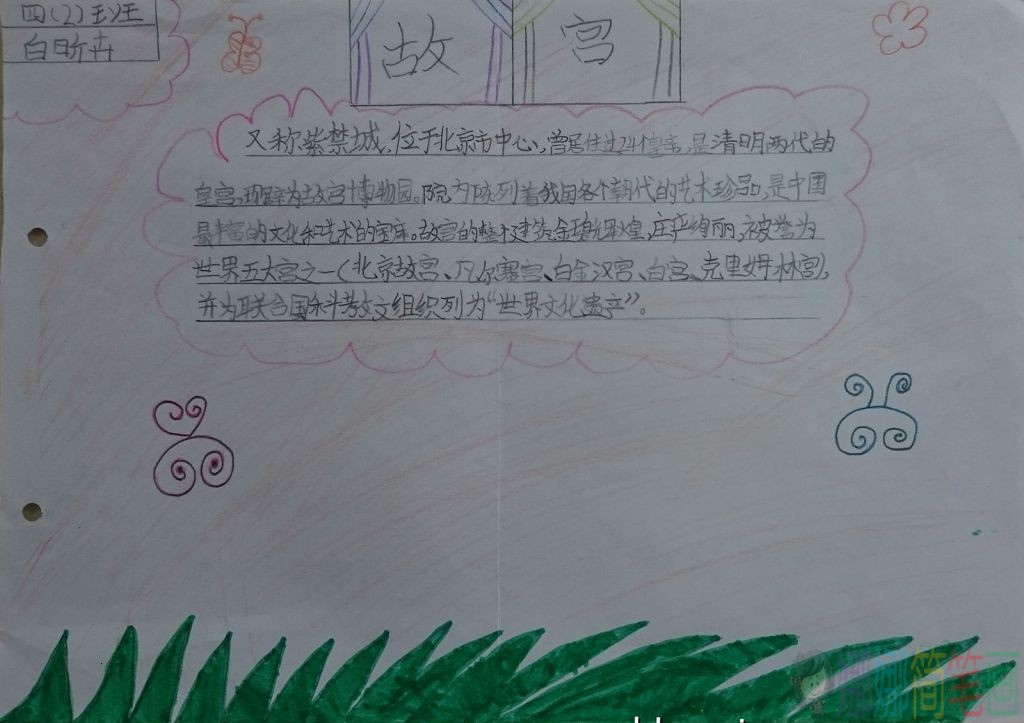 四(2)班
白昕卉
故宫
又称紫禁城,位于北京市中心,曾居住过24个皇帝,是清明两代的
皇宫,现辟为故宫博物园。院内陈列着我国各个朝代的艺术珍品,是中国
最丰富的文化和艺术的宝库。故宫的整个建筑金碧辉煌,庄严绚丽,被誉为
世界五大宫之一(北京故宫、凡尔赛宫、白金汉宫、白宫、克里姆林宫),
并为联合国科教文组织列为“世界文化遗产”。
简笔画